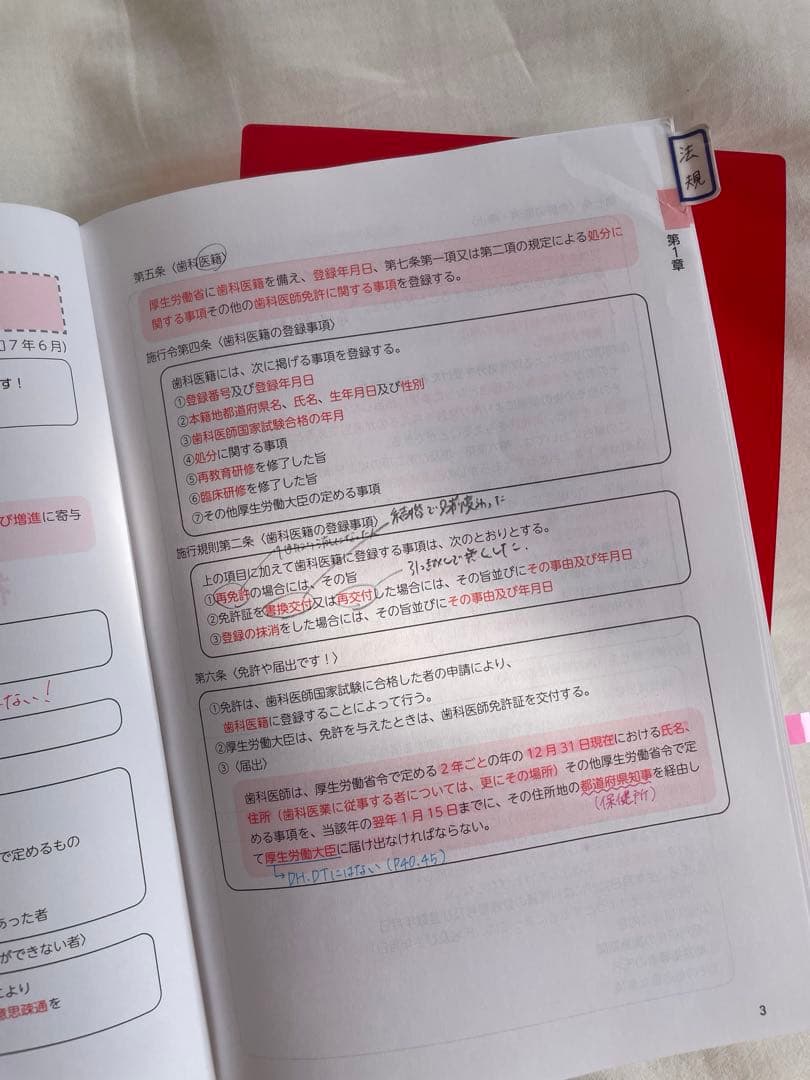 法規
第1章
第五条〈歯科医籍〉
厚生労働省に歯科医籍を備え、登録年月日、第七条第一項又は第二項の規定による処分に
関する事項その他の歯科医師免許に関する事項を登録する。
施行令第四条〈歯科医籍の登録事項〉
歯科医籍には、次に掲げる事項を登録する。
①登録番号及び登録年月日
②本籍地都道府県名、氏名、生年月日及び性別
③歯科医師国家試験合格の年月
④処分に関する事項
⑤再教育研修を修了した旨
⑥臨床研修を修了した旨
⑦その他厚生労働大臣の定める事項
施行規則第二条〈歯科医籍の登録事項〉
結婚で
上の項目に加えて歯科医籍に登録する事項は、次のとおりとする。
①再免許の場合には、その旨
引っ越しで無くした.
②免許証を書換交付又は再交付した場合には、その旨並びにその事由及び年月日
③登録の抹消をした場合には、その旨並びにその事由及び年月日
第六条〈免許や届出です！〉
①免許は、歯科医師国家試験に合格した者の申請により、
歯科医籍に登録することによって行う。
②厚生労働大臣は、免許を与えたときは、歯科医師免許証を交付する。
③〈届出〉
歯科医師は、厚生労働省令で定める2年ごとの年の12月31日現在における氏名、
住所（歯科医業に従事する者については、更にその場所）その他厚生労働省令で定
める事項を、当該年の翌年1月15日までに、その住所地の都道府県知事を経由し
(保健所)
て厚生労働大臣に届け出なければならない。
→DH.DTにはない(P40.45)
3
7年6月)
す！
び増進に寄与
ない!
で定めるもの
あった者
ができない者〉
により
意思疎通を